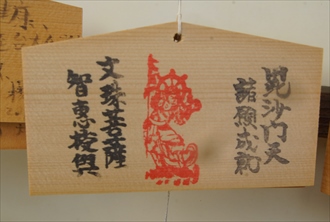 毘沙門天
諸願成就
文殊菩薩
智惠授與